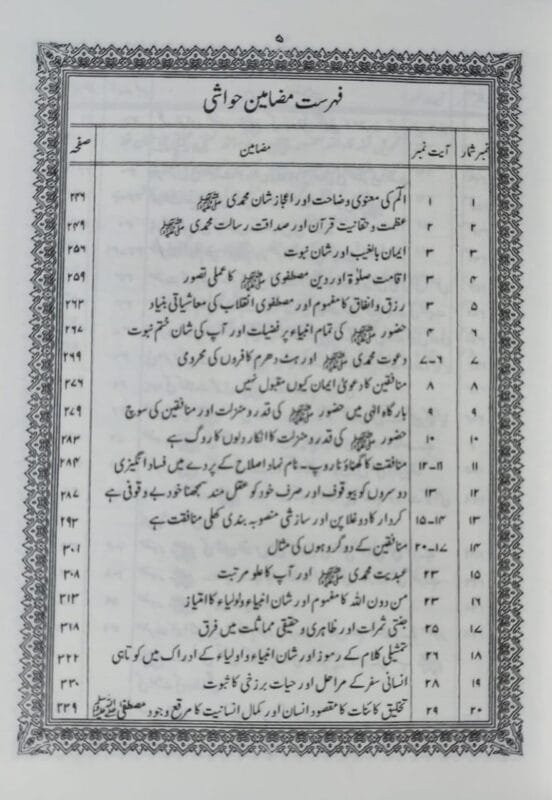 ۵
فہرست مضامین حواشی
نمبر شمار آیت نمبر مضامین صفحہ
۱ ۱ الٓم کی معنوی وضاحت اور اعجاز شان محمدی ﷺ ۲۴۶
۲ ۲ عظمت و حقانیت قرآن اور صداقت رسالت محمدی ﷺ ۲۴۹
۳ ۳ ایمان بالغیب اور شان نبوت ۲۵۶
۴ ۳ اقامت صلوٰۃ اور دین مصطفوی ﷺ کا عملی تصور ۲۵۹
۵ ۳ رزق و انفاق کا مفہوم اور مصطفوی انقلاب کی معاشیاتی بنیاد ۲۶۳
۶ ۴ حضور ﷺ کی تمام انبیاء پر فضیلت اور آپ کی شان ختم نبوت ۲۶۷
۷ ۶-۷ دعوت محمدی ﷺ اور ہٹ دھرم کافروں کی محرومی ۲۶۹
۸ ۸ منافقین کا دعویٰ ایمان کیوں مقبول نہیں ۲۷۶
۹ ۹ بارگاہ الٰہی میں حضور ﷺ کی قدر و منزلت اور منافقین کی سوچ ۲۷۹
۱۰ ۱۰ حضور ﷺ کی قدر و منزلت کا انکار دلوں کا روگ ہے ۲۸۳
۱۱ ۱۱-۱۲ منافقت کا گھناؤنا روپ - نام نہاد اصلاح کے پردے میں فساد انگیزی ۲۸۴
۱۲ ۱۳ دوسروں کو بیوقوف اور صرف خود کو عقل مند سمجھنا خود بے وقوفی ہے ۲۸۷
۱۳ ۱۴-۱۵ کردار کا دوغلا پن اور سازشی منصوبہ بندی کھلی منافقت ہے ۲۹۳
۱۴ ۱۷-۲۰ منافقین کے دو گروہوں کی مثال ۳۰۱
۱۵ ۲۳ عبدیت محمدی ﷺ اور آپ کا علو مرتبت ۳۰۸
۱۶ ۲۳ من دون اللہ کا مفہوم اور شان انبیاء و اولیاء کا امتیاز ۳۱۳
۱۷ ۲۵ جنتی ثمرات اور ظاہری و حقیقی مماثلت میں فرق ۳۱۸
۱۸ ۲۶ تمثیلی کلام کے رموز اور شان انبیاء و اولیاء کے ادراک میں کوتاہی ۳۲۲
۱۹ ۲۸ انسانی سفر کے مراحل اور حیات برزخی کا ثبوت ۳۳۰
۲۰ ۲۹ تخلیق کائنات کا مقصود انسان اور کمال انسانیت کا مرقع وجود مصطفیٰ ﷺ ۳۳۹